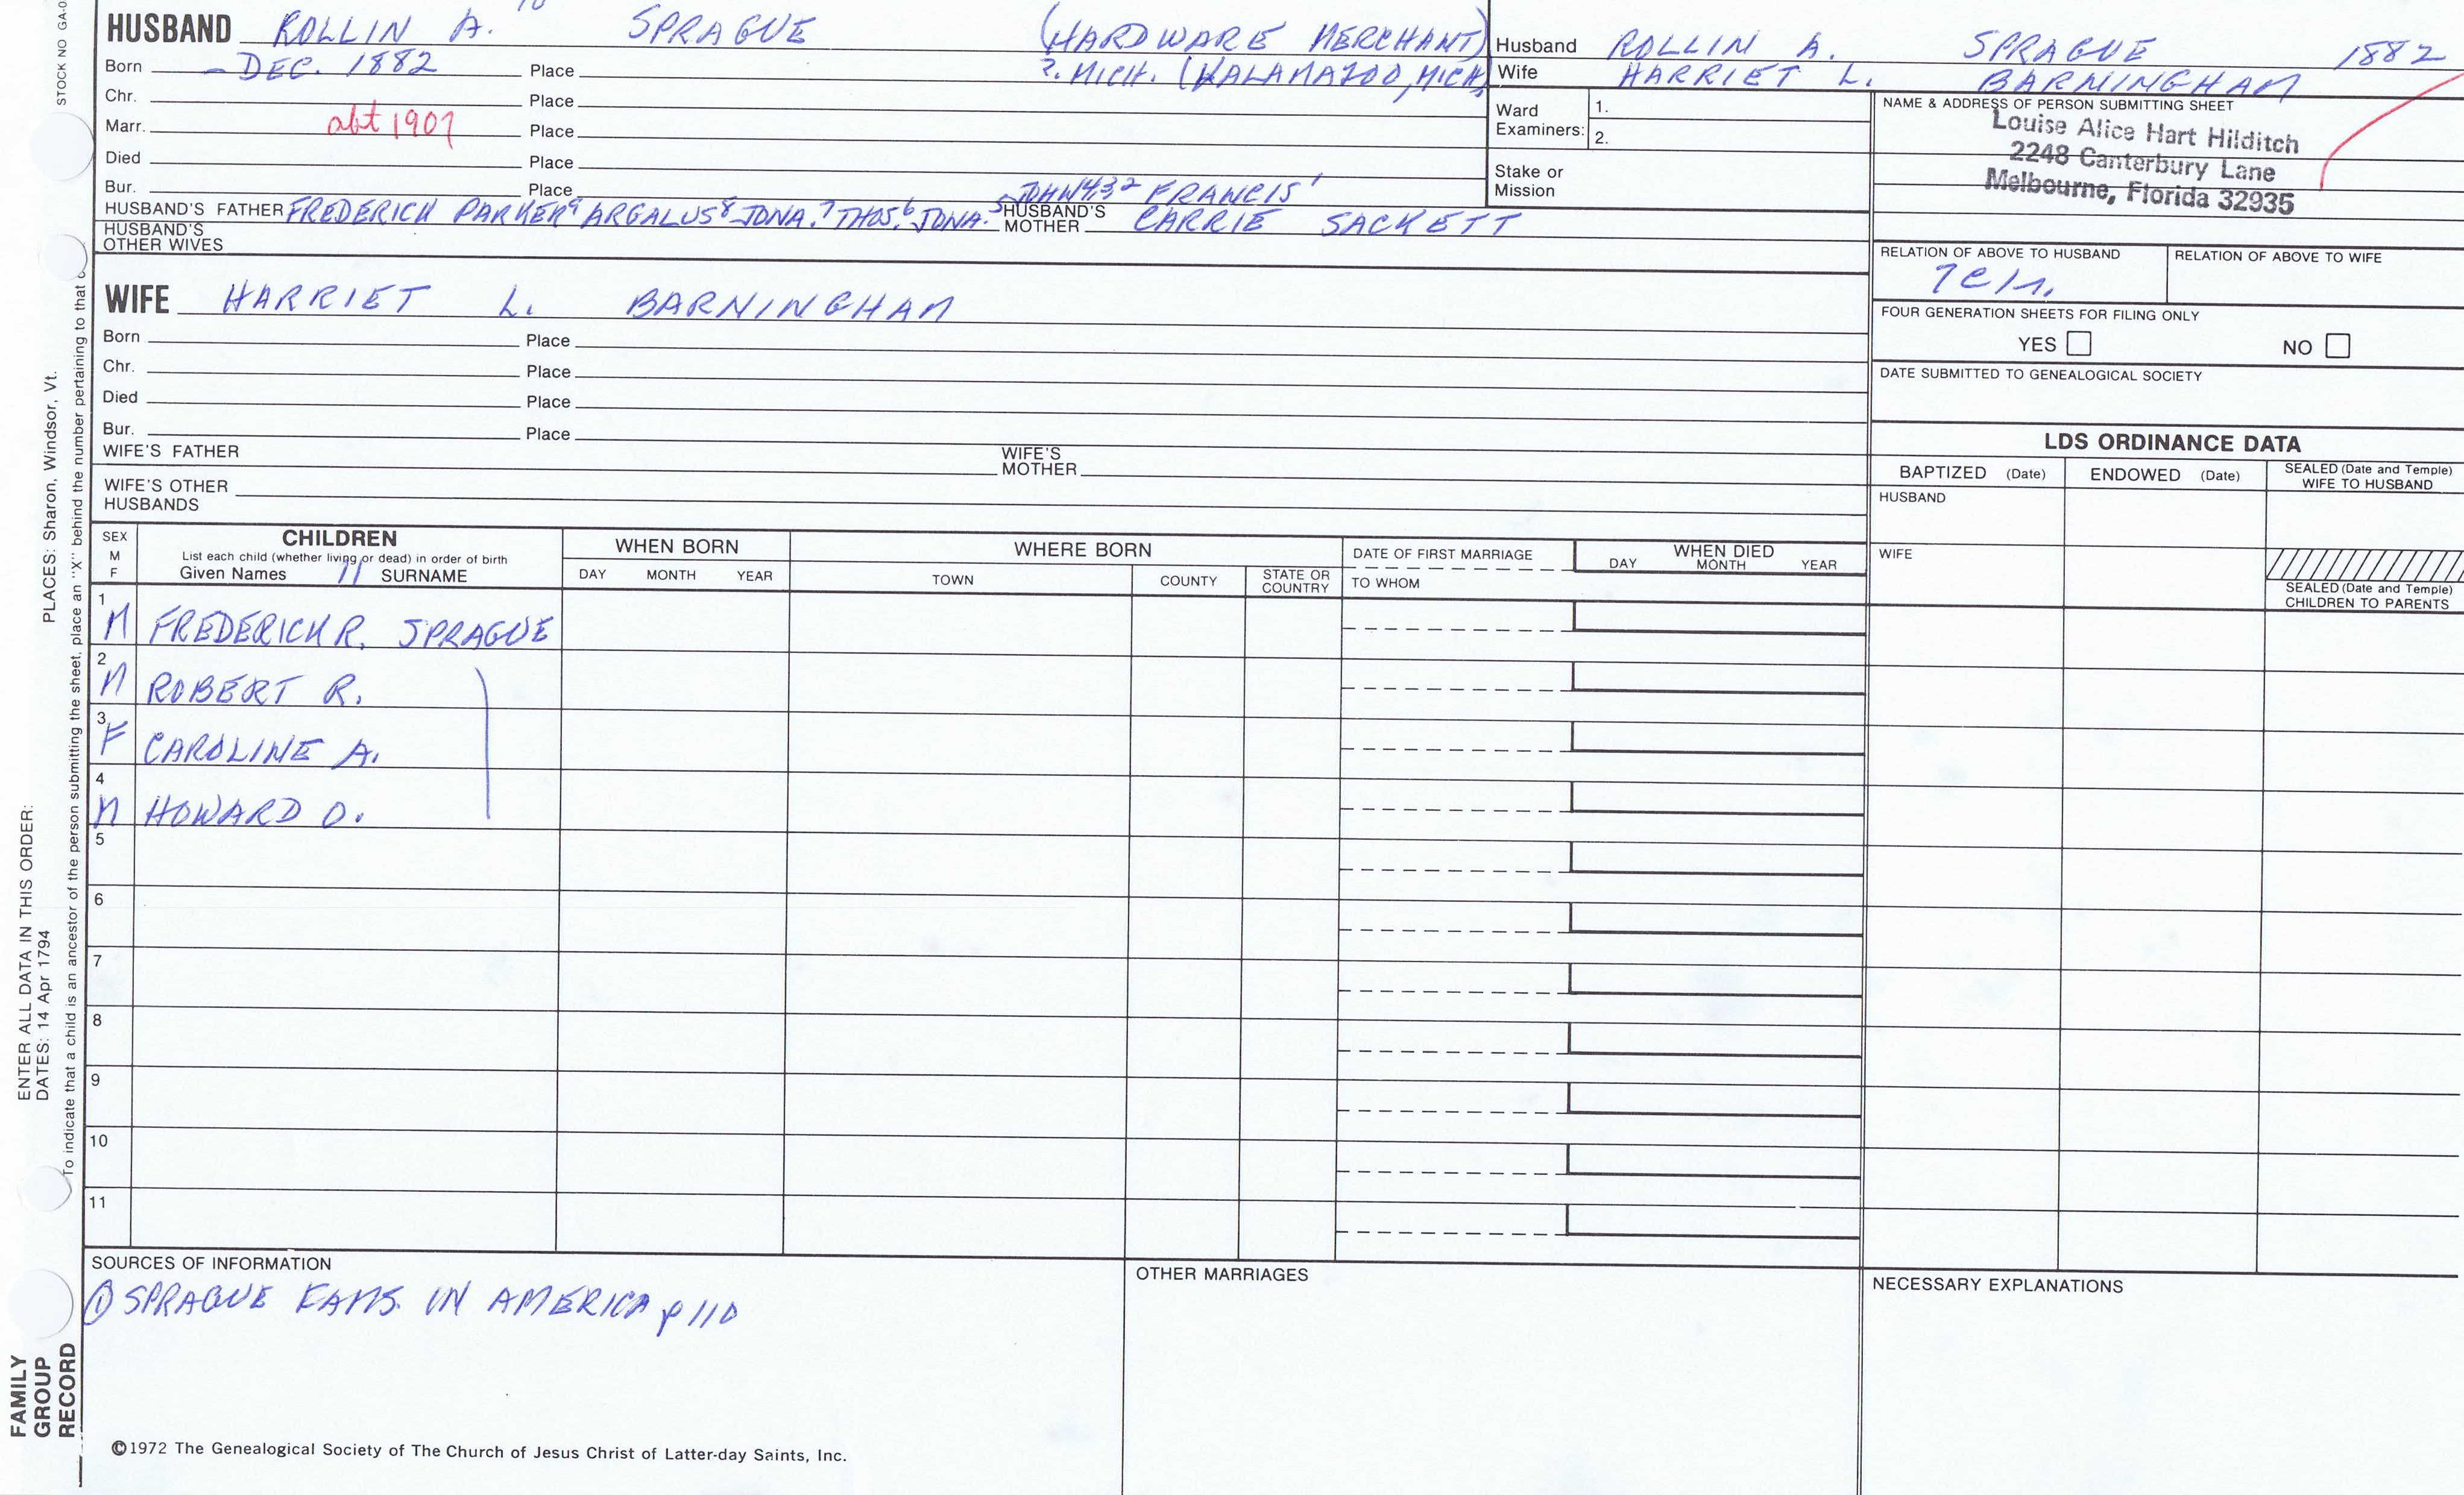 STOCK NO GA-0
10
HUSBAND ROLLIN A. SPRAGUE (HARDWARE MERCHANT)
Born - DEC. 1882 Place ?. MICH. (KALAMAZOO, MICH.
Chr. Place
Marr. abt 1907 Place
Died Place
Bur. Place
JOHN 4,3,2 FRANCIS 1
HUSBAND'S FATHER FREDERICK PARKER 9 ARGALUS 8 JONA. 7 THOS. 6 JONA. 5 HUSBAND'S MOTHER CARRIE SACKETT
HUSBAND'S OTHER WIVES
Husband ROLLIN A. SPRAGUE 1882
Wife HARRIET L. BARNINGHAM
Ward Examiners: 1.
2.
Stake or Mission
NAME & ADDRESS OF PERSON SUBMITTING SHEET
Louise Alice Hart Hilditch
2248 Canterbury Lane
Melbourne, Florida 32935
RELATION OF ABOVE TO HUSBAND RELATION OF ABOVE TO WIFE
FOUR GENERATION SHEETS FOR FILING ONLY
YES NO
DATE SUBMITTED TO GENEALOGICAL SOCIETY
WIFE HARRIET L. BARNINGHAM
Born Place
Chr. Place
Died Place
Bur. Place
WIFE'S FATHER WIFE'S MOTHER
WIFE'S OTHER HUSBANDS
LDS ORDINANCE DATA
BAPTIZED (Date) ENDOWED (Date) SEALED (Date and Temple) WIFE TO HUSBAND
HUSBAND
WIFE
SEALED (Date and Temple) CHILDREN TO PARENTS
SEX M F
CHILDREN
List each child (whether living or dead) in order of birth
Given Names 11 SURNAME
WHEN BORN
DAY MONTH YEAR
WHERE BORN
TOWN COUNTY STATE OR COUNTRY
DATE OF FIRST MARRIAGE
TO WHOM
WHEN DIED
DAY MONTH YEAR
1 M FREDERICK R. SPRAGUE
2 M ROBERT R.
3 F CAROLINE A.
4 M HOWARD O.
5
6
7
8
9
10
11
SOURCES OF INFORMATION
① SPRAGUE FAMS. IN AMERICA p 110
OTHER MARRIAGES
NECESSARY EXPLANATIONS
©1972 The Genealogical Society of The Church of Jesus Christ of Latter-day Saints, Inc.
FAMILY
GROUP
RECORD
ENTER ALL DATA IN THIS ORDER:
DATES: 14 Apr 1794
PLACES: Sharon, Windsor, Vt.
To indicate that a child is an ancestor of the person submitting the sheet, place an "X" behind the number pertaining to that